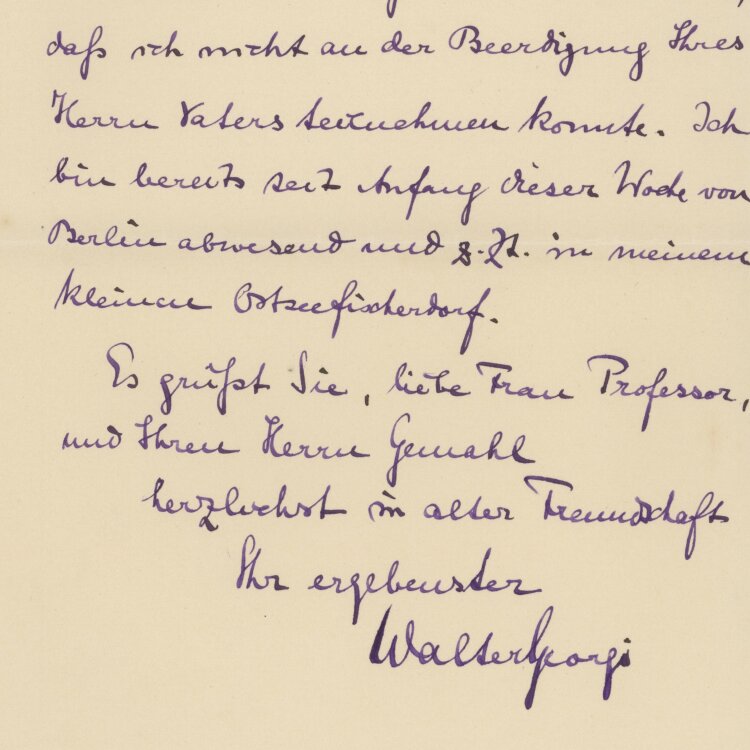 daß ich nicht an der Beerdigung Ihres
Herrn Vaters teilnehmen konnte. Ich
bin bereits seit Anfang dieser Woche von
Berlin abwesend und z. Zt. in meinem
kleinen Ostseefischerdorf.
Es grüßt Sie, liebe Frau Professor,
und Ihren Herrn Gemahl
herzlichst in alter Freundschaft
Ihr ergebenster
Walter Georgi